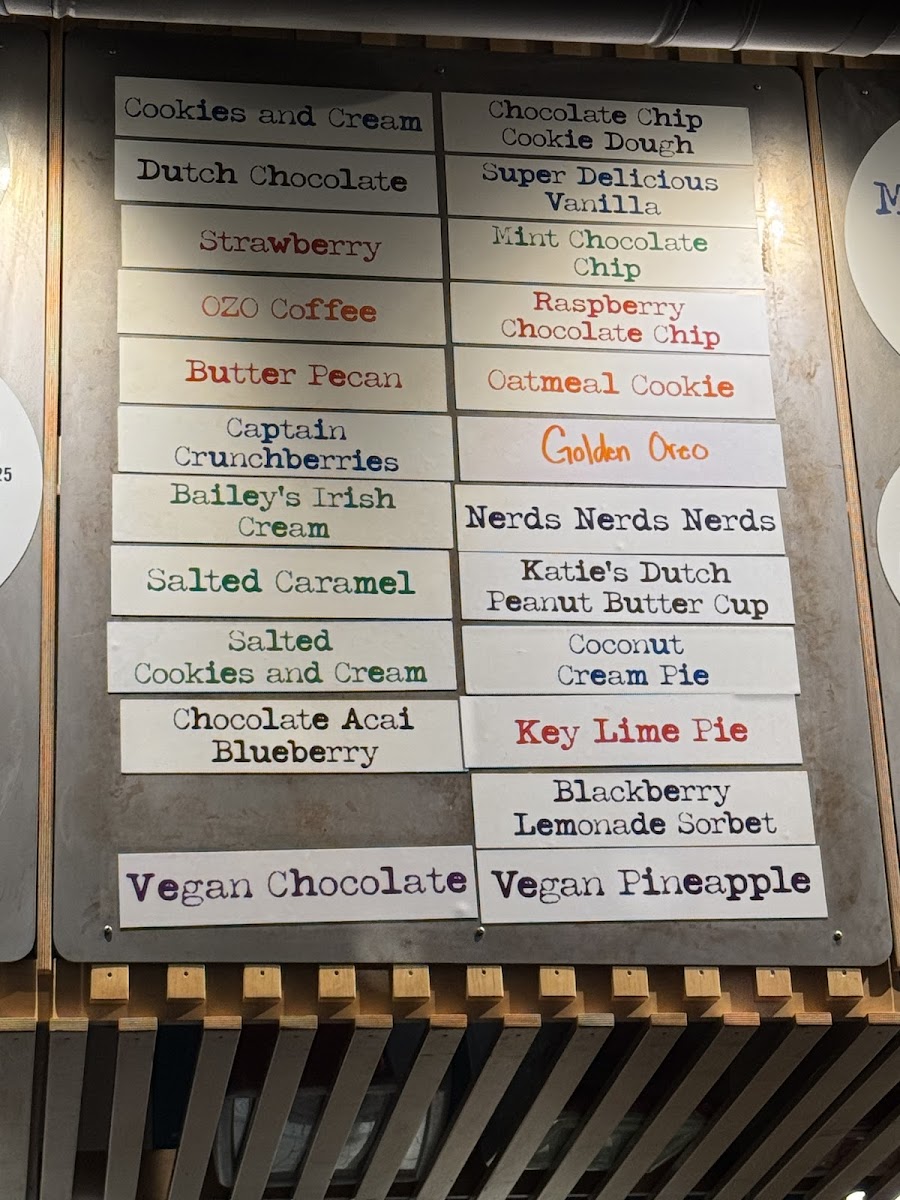 Cookies and Cream
Dutch Chocolate
Strawberry
OZO Coffee
Butter Pecan
Captain
Crunchberries
Bailey's Irish
Cream
Salted Caramel
Salted
Cookies and Cream
Chocolate Acai
Blueberry
Vegan Chocolate
Chocolate Chip
Cookie Dough
Super Delicious
Vanilla
Mint Chocolate
Chip
Raspberry
Chocolate Chip
Oatmeal Cookie
Golden Oreo
Nerds Nerds Nerds
Katie's Dutch
Peanut Butter Cup
Coconut
Cream Pie
Key Lime Pie
Blackberry
Lemonade Sorbet
Vegan Pineapple